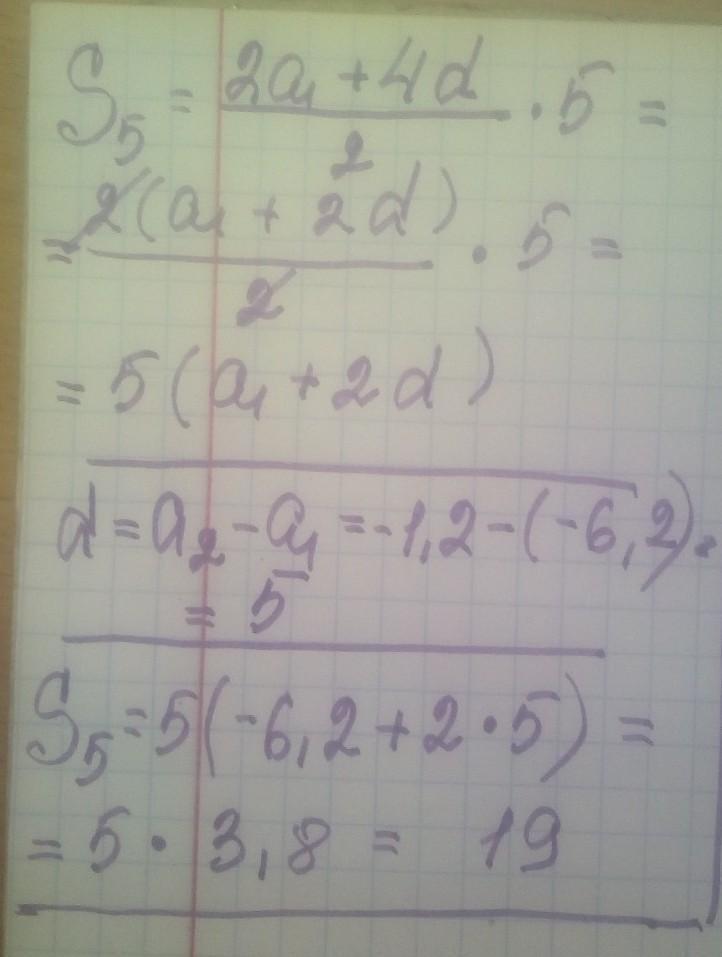 S₅ = (2a₁ + 4d)/2 · 5 =
= 2(a₁ + 2d)/2 · 5 =
= 5(a₁ + 2d)
d = a₂ - a₁ = -1,2 - (-6,2) =
= 5
S₅ = 5(-6,2 + 2 · 5) =
= 5 · 3,8 = 19